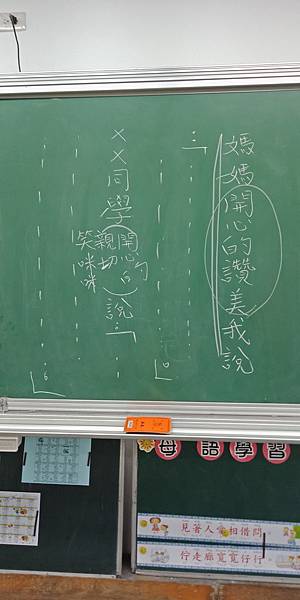 媽媽開心的讚美我說
:「
。」
××同學開心的說:「
親切
笑咪咪
。」
母語學習
見著人 相借問
佇走廊寬寬仔行